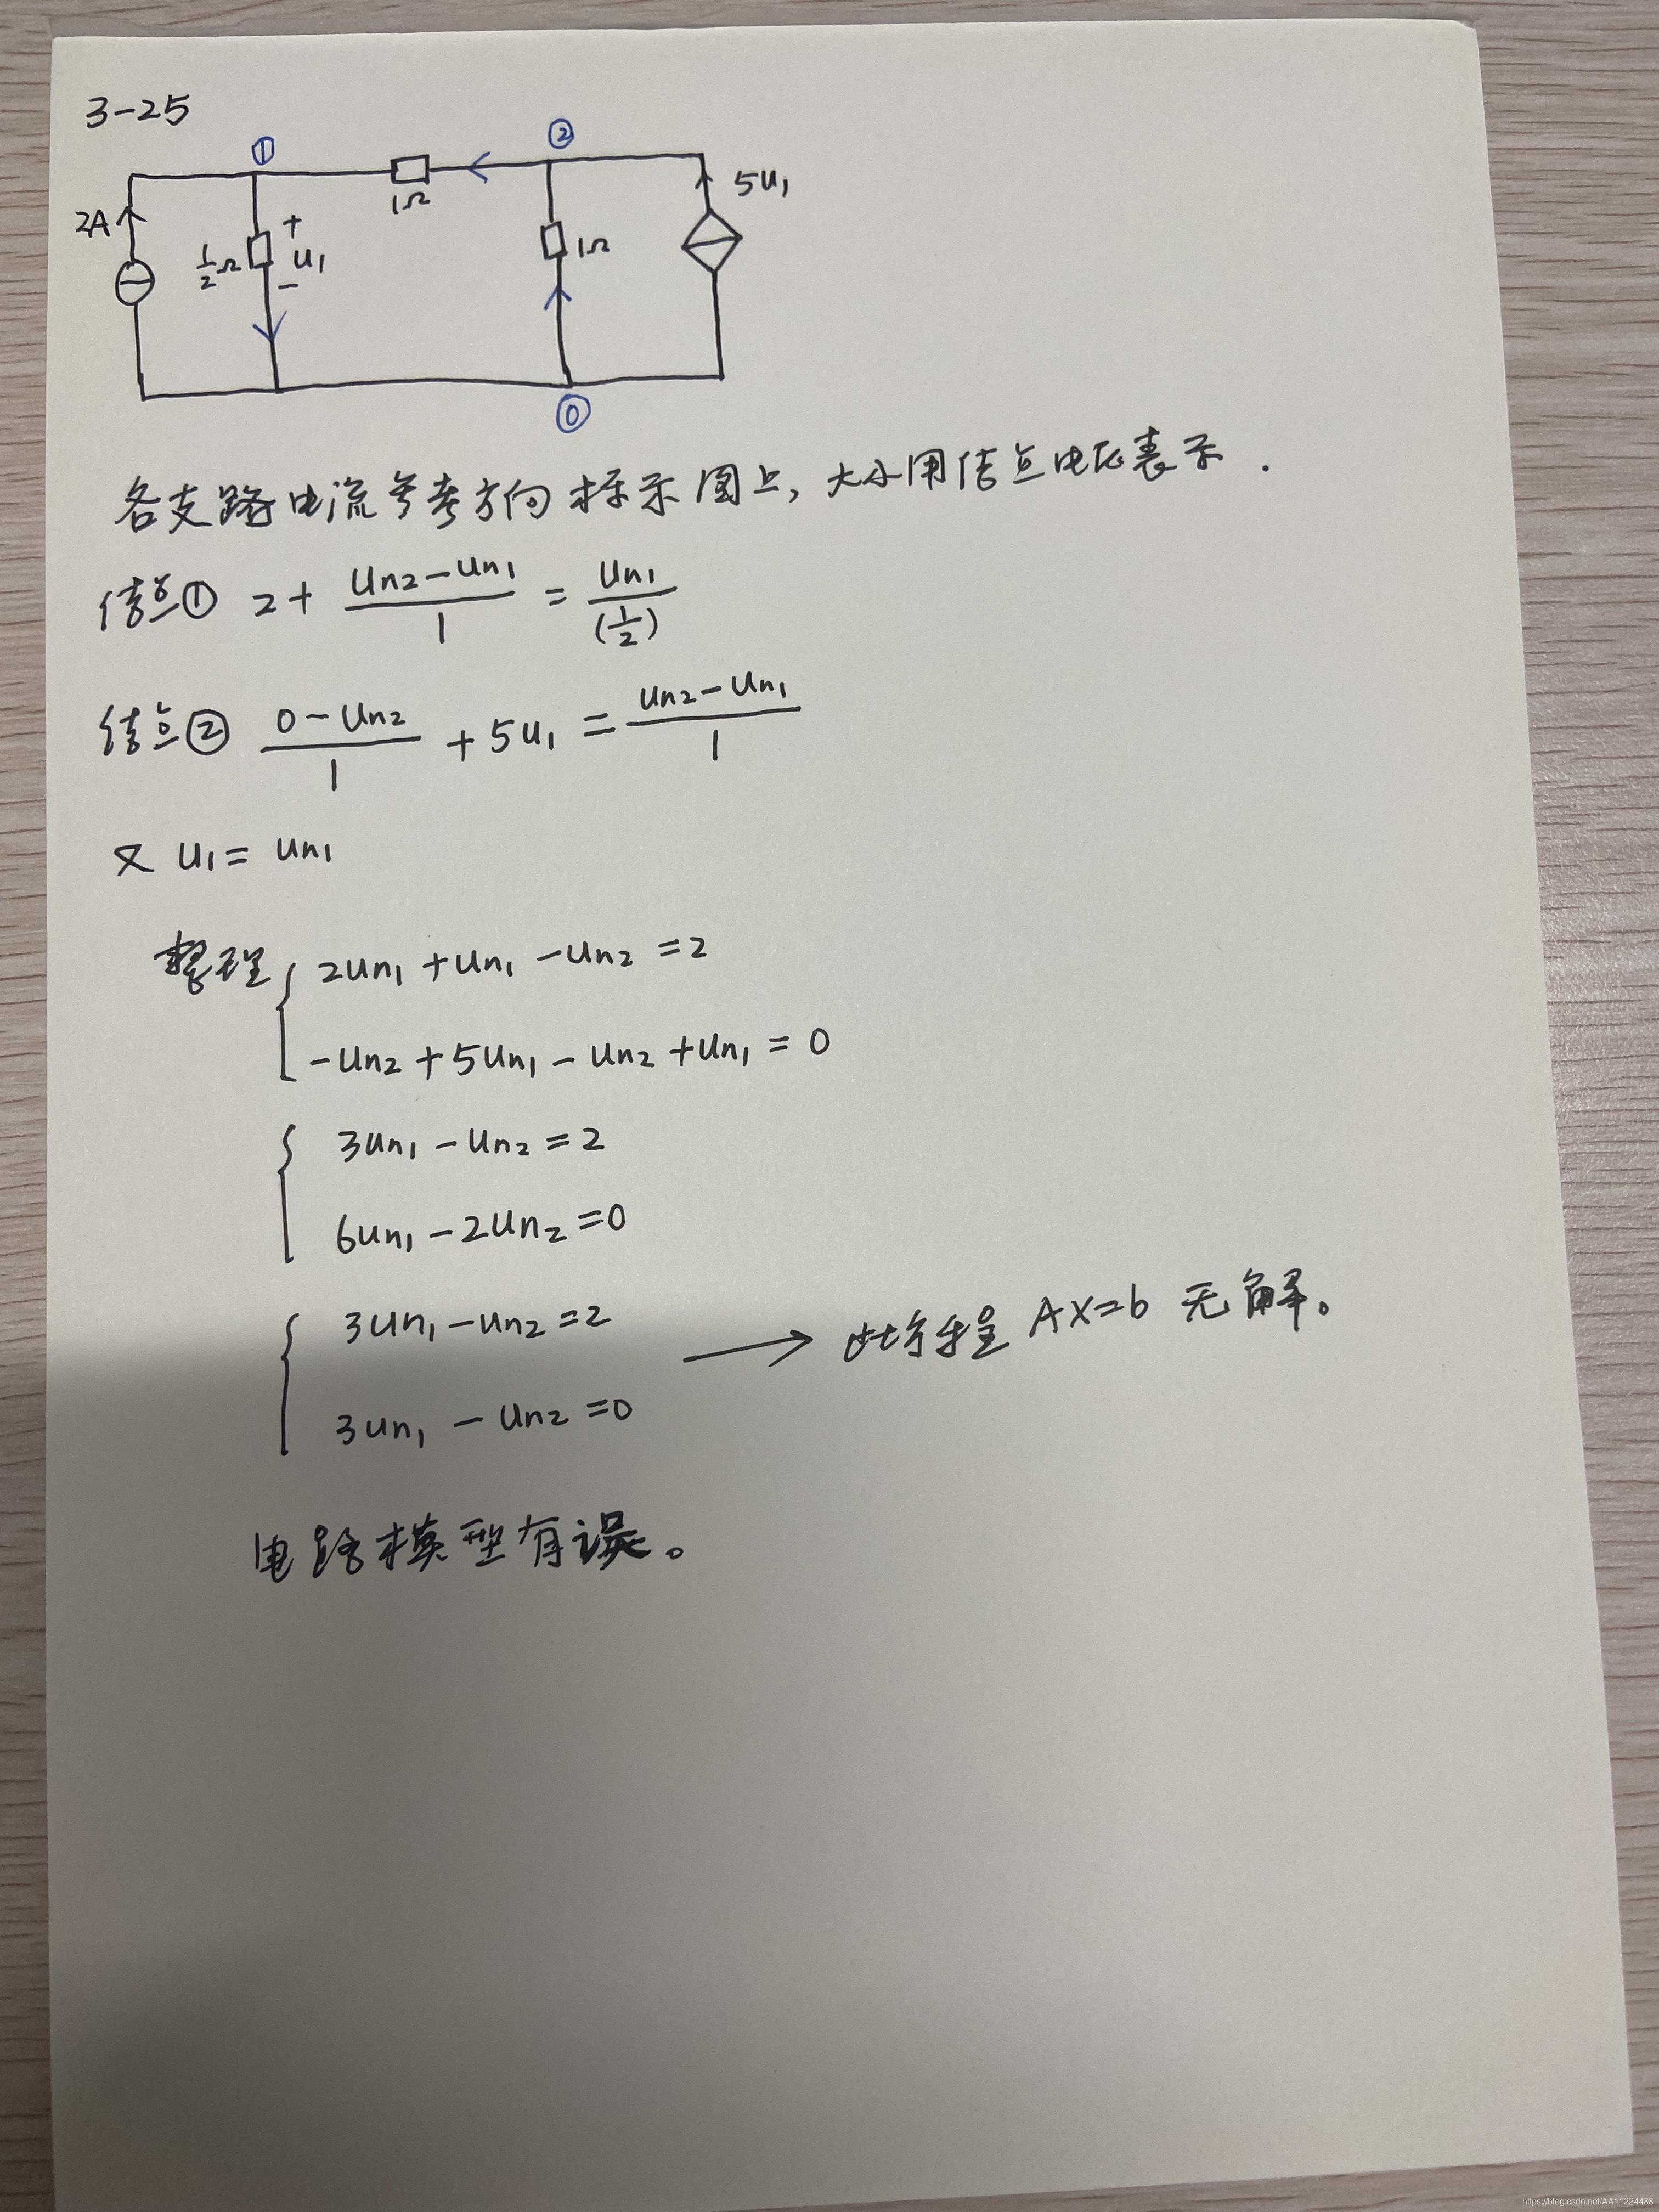 3-25
① ②
2A 1/2Ω + u₁ − 1Ω 1Ω 5u₁
⓪
各支路电流参考方向标示图上，大小用结点电压表示．
结点① 2 + (un₂ − un₁)/1 = un₁/(1/2)
结点② (0 − un₂)/1 + 5u₁ = (un₂ − un₁)/1
又 u₁ = un₁
整理 { 2un₁ + un₁ − un₂ = 2
−un₂ + 5un₁ − un₂ + un₁ = 0
{ 3un₁ − un₂ = 2
6un₁ − 2un₂ = 0
{ 3un₁ − un₂ = 2 → 此方程 AX=b 无解。
3un₁ − un₂ = 0
电路模型有误。
https://blog.csdn.net/AA11224488